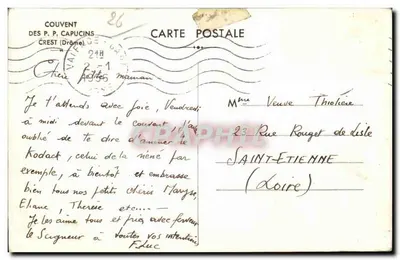 COUVENT
DES P. P. CAPUCINS
CREST (Drôme)
26
CARTE POSTALE
21H
Chère petite maman
Je t'attends avec joie, Vendredi
à midi devant le couvent. J'ai
oublié de te dire d'amener le
Kodack, celui de la néné par
exemple, à bientôt et embrasse
bien tous nos petits chéris Maryse,
Eliane, Thérèse etc...
Je les aime tous et prie avec ferveur
le Seigneur à toutes vos intentions
F. Luc
Mme Veuve
23 Rue Rouget de Lisle
SAINT-ETIENNE
(Loire)